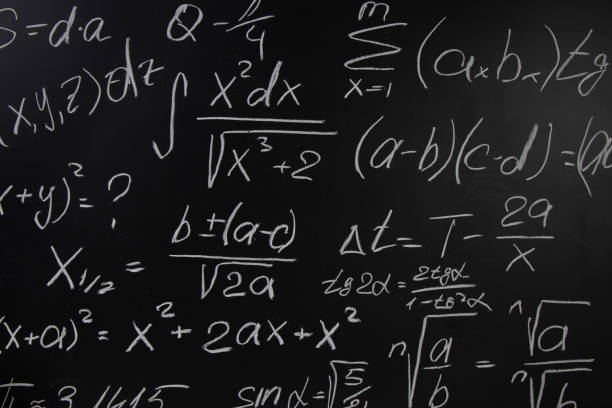 S = d·a
Q - 
m ∑ x=1 (aₓbₓ)tg
(x,y,z) dz
∫ x²dx / √x³+2
(a-b)(c-d)=(a
x+y)² = ?
X₁/₂ = b±(a-c) / √2a
Δt = T - 2a / x
tg2α = 2tgα / 1-tg²α
(x+a)² = x² + 2ax + x²
ⁿ√a/b = ⁿ√a / ⁿ√b
≈ 3,1415
sin α = √5